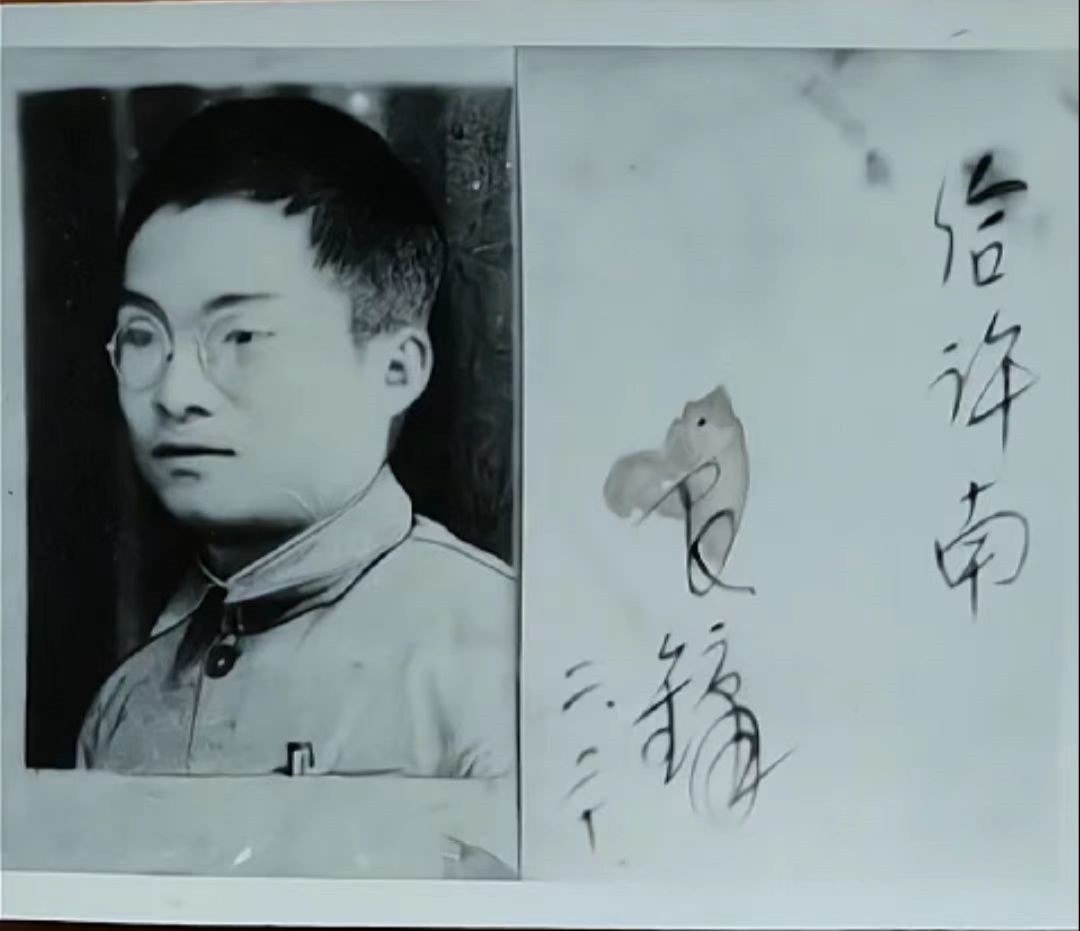 给许南
良镛
二.二十